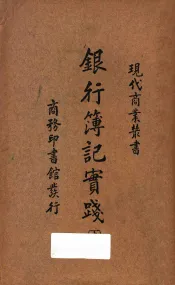 現代商業叢書
銀行簿記實踐
商務印書館發行